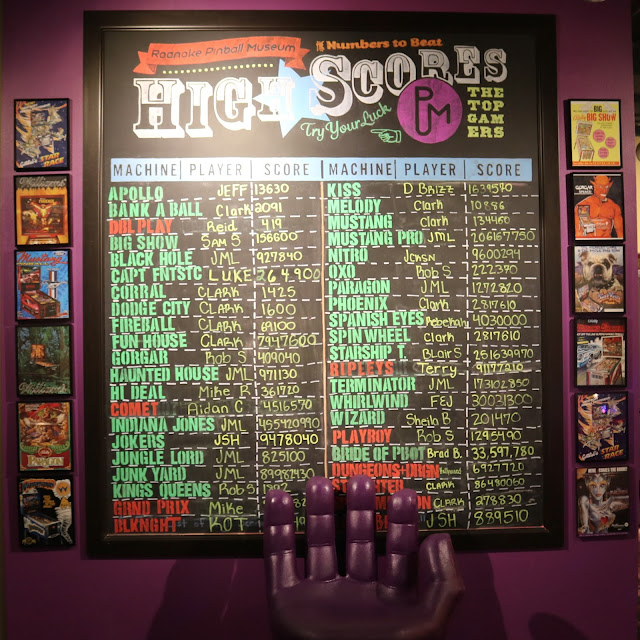 Roanoke Pinball Museum
Numbers to Beat
HIGH SCORES
Try Your Luck
PM
THE TOP GAMERS
MACHINE PLAYER SCORE
APOLLO JEFF 13630
BANK A BALL Clark 2091
DBL PLAY Reid 419
BIG SHOW SAM S 156600
BLACK HOLE JML 927840
CAPT FNTSTC LUKE 264,900
CORRAL CLARK 1425
DODGE CITY CLARK 1600
FIREBALL CLARK 69100
FUN HOUSE CLARK 7947600
GORGAR Rob S 409040
HAUNTED HOUSE JML 971130
HI DEAL Mike R 361720
COMET Aidan C 4516570
INDIANA JONES JML 455420990
JOKERS JSH 9478040
JUNGLE LORD JML 825100
JUNK YARD JML 89982430
KINGS QUEENS Rob S
GRND PRIX Mike
BLKNGHT KOT
MACHINE PLAYER SCORE
KISS D BRIZZ 1639590
MELODY Clark 10886
MUSTANG Clark 134460
MUSTANG PRO JML 206167750
NITRO Jason 9600294
OXO Rob S 222390
PARAGON JML 1272820
PHOENIX Clark 2817610
SPANISH EYES 4030000
SPIN WHEEL Clark 2817610
STARSHIP T. BLair S 251639970
RIPLEYS Terry
TERMINATOR JML 173102850
WHIRLWIND FEJ 30021300
WIZARD Sheila B 201470
PLAYBOY Rob S 1295490
BRIDE OF PBOT Brad B. 33,597,780
DUNGEONS+DRGN 6927720
CLARK 86480060
CLARK 278830
JSH 889510
STAR RACE
BIG SHOW
GORGAR
STAR RACE